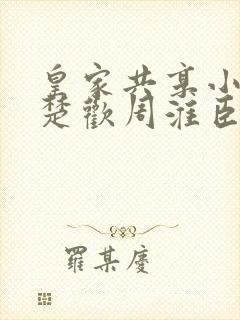 皇家共享小
楚歡周淮臣
羅某慶